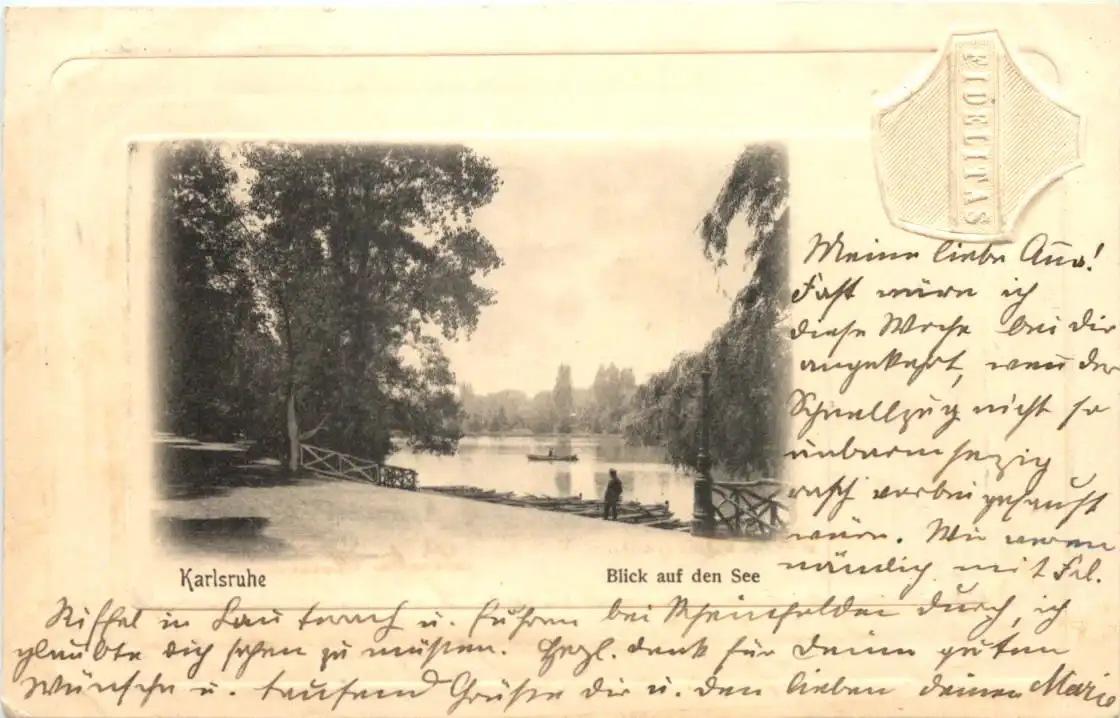 FIDELITAS
Meine liebe Anna!
Fast wäre ich
diese Woche bei dir
angekehrt, wenn der
Schnellzug nicht so
unbarmherzig
rasch vorbeigesaust
wäre. Wir waren
nämlich mit Frl.
Karlsruhe
Blick auf den See
in u. fuhren bei Rheinfelden durch, ich
glaubte dich sehen zu müssen. Herzl. dank für deine guten
Wünsche u. tausend Grüße dir u. den lieben deinen Marie